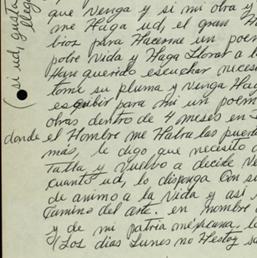 (si ud, gusta
llega
que venga y si mi obra y
me Haga ud, el gran H
bios para Hacerme un poem
pobre vida y Haga Llorar a l
Han querido escuchar neces
tome su pluma y venga Hag
escribir para mi un poem
obras dentro de 4 meses en S
donde el Hombre me Habra las puerta
mas, le digo que necesito d
Talla y Vuelbo a decirle Ve
cuanto ud, lo disponga Con s
de animo a la Vida y asi
Camino del arte. en nombre
y de mi patria mexicana, l
(Los dias Lunes no Hestoy s